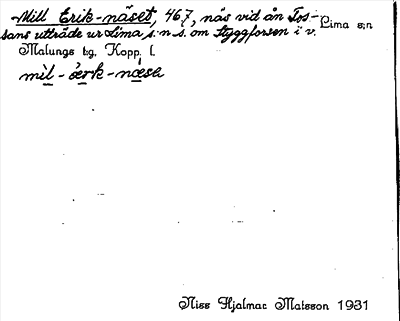 Mill Erik-näset, 467, näs vid ån Fos- Lima s:n
sans utträde ur Lima s:n s. om Styggforsen i v.
Malungs tg, Kopp. l.
mil - ærk - næsa
Niss Hjalmar Matsson 1931